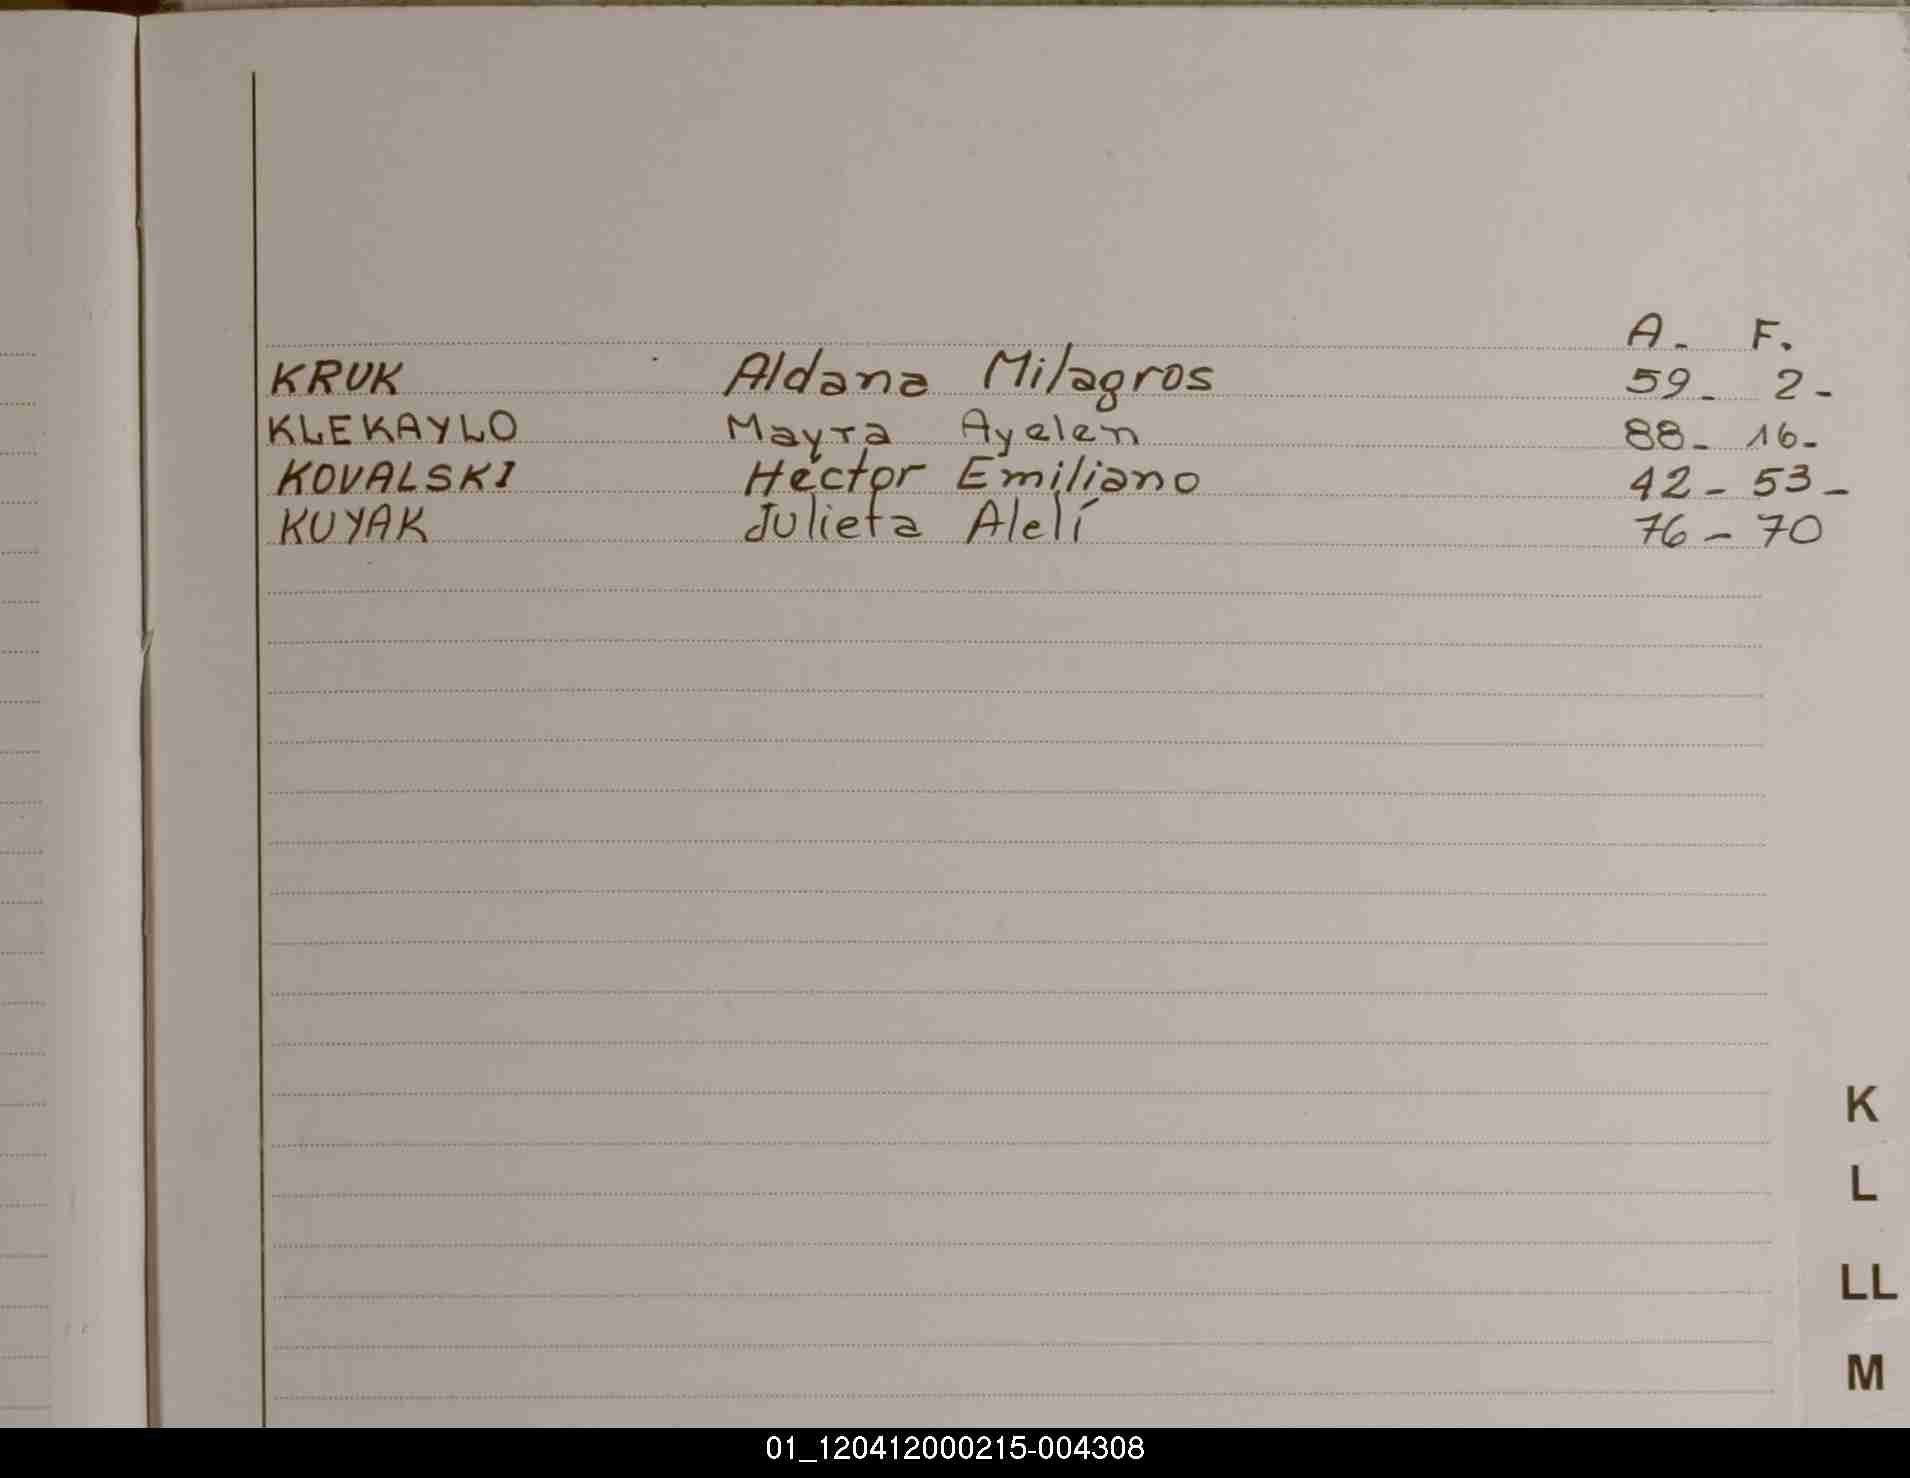 A. F.
KRUK Aldana Milagros 59- 2-
KLEKAYLO Mayra Ayelen 88- 16-
KOVALSKI Héctor Emiliano 42- 53-
KUYAK Julieta Alelí 76- 70
K
L
LL
M
01_120412000215-004308